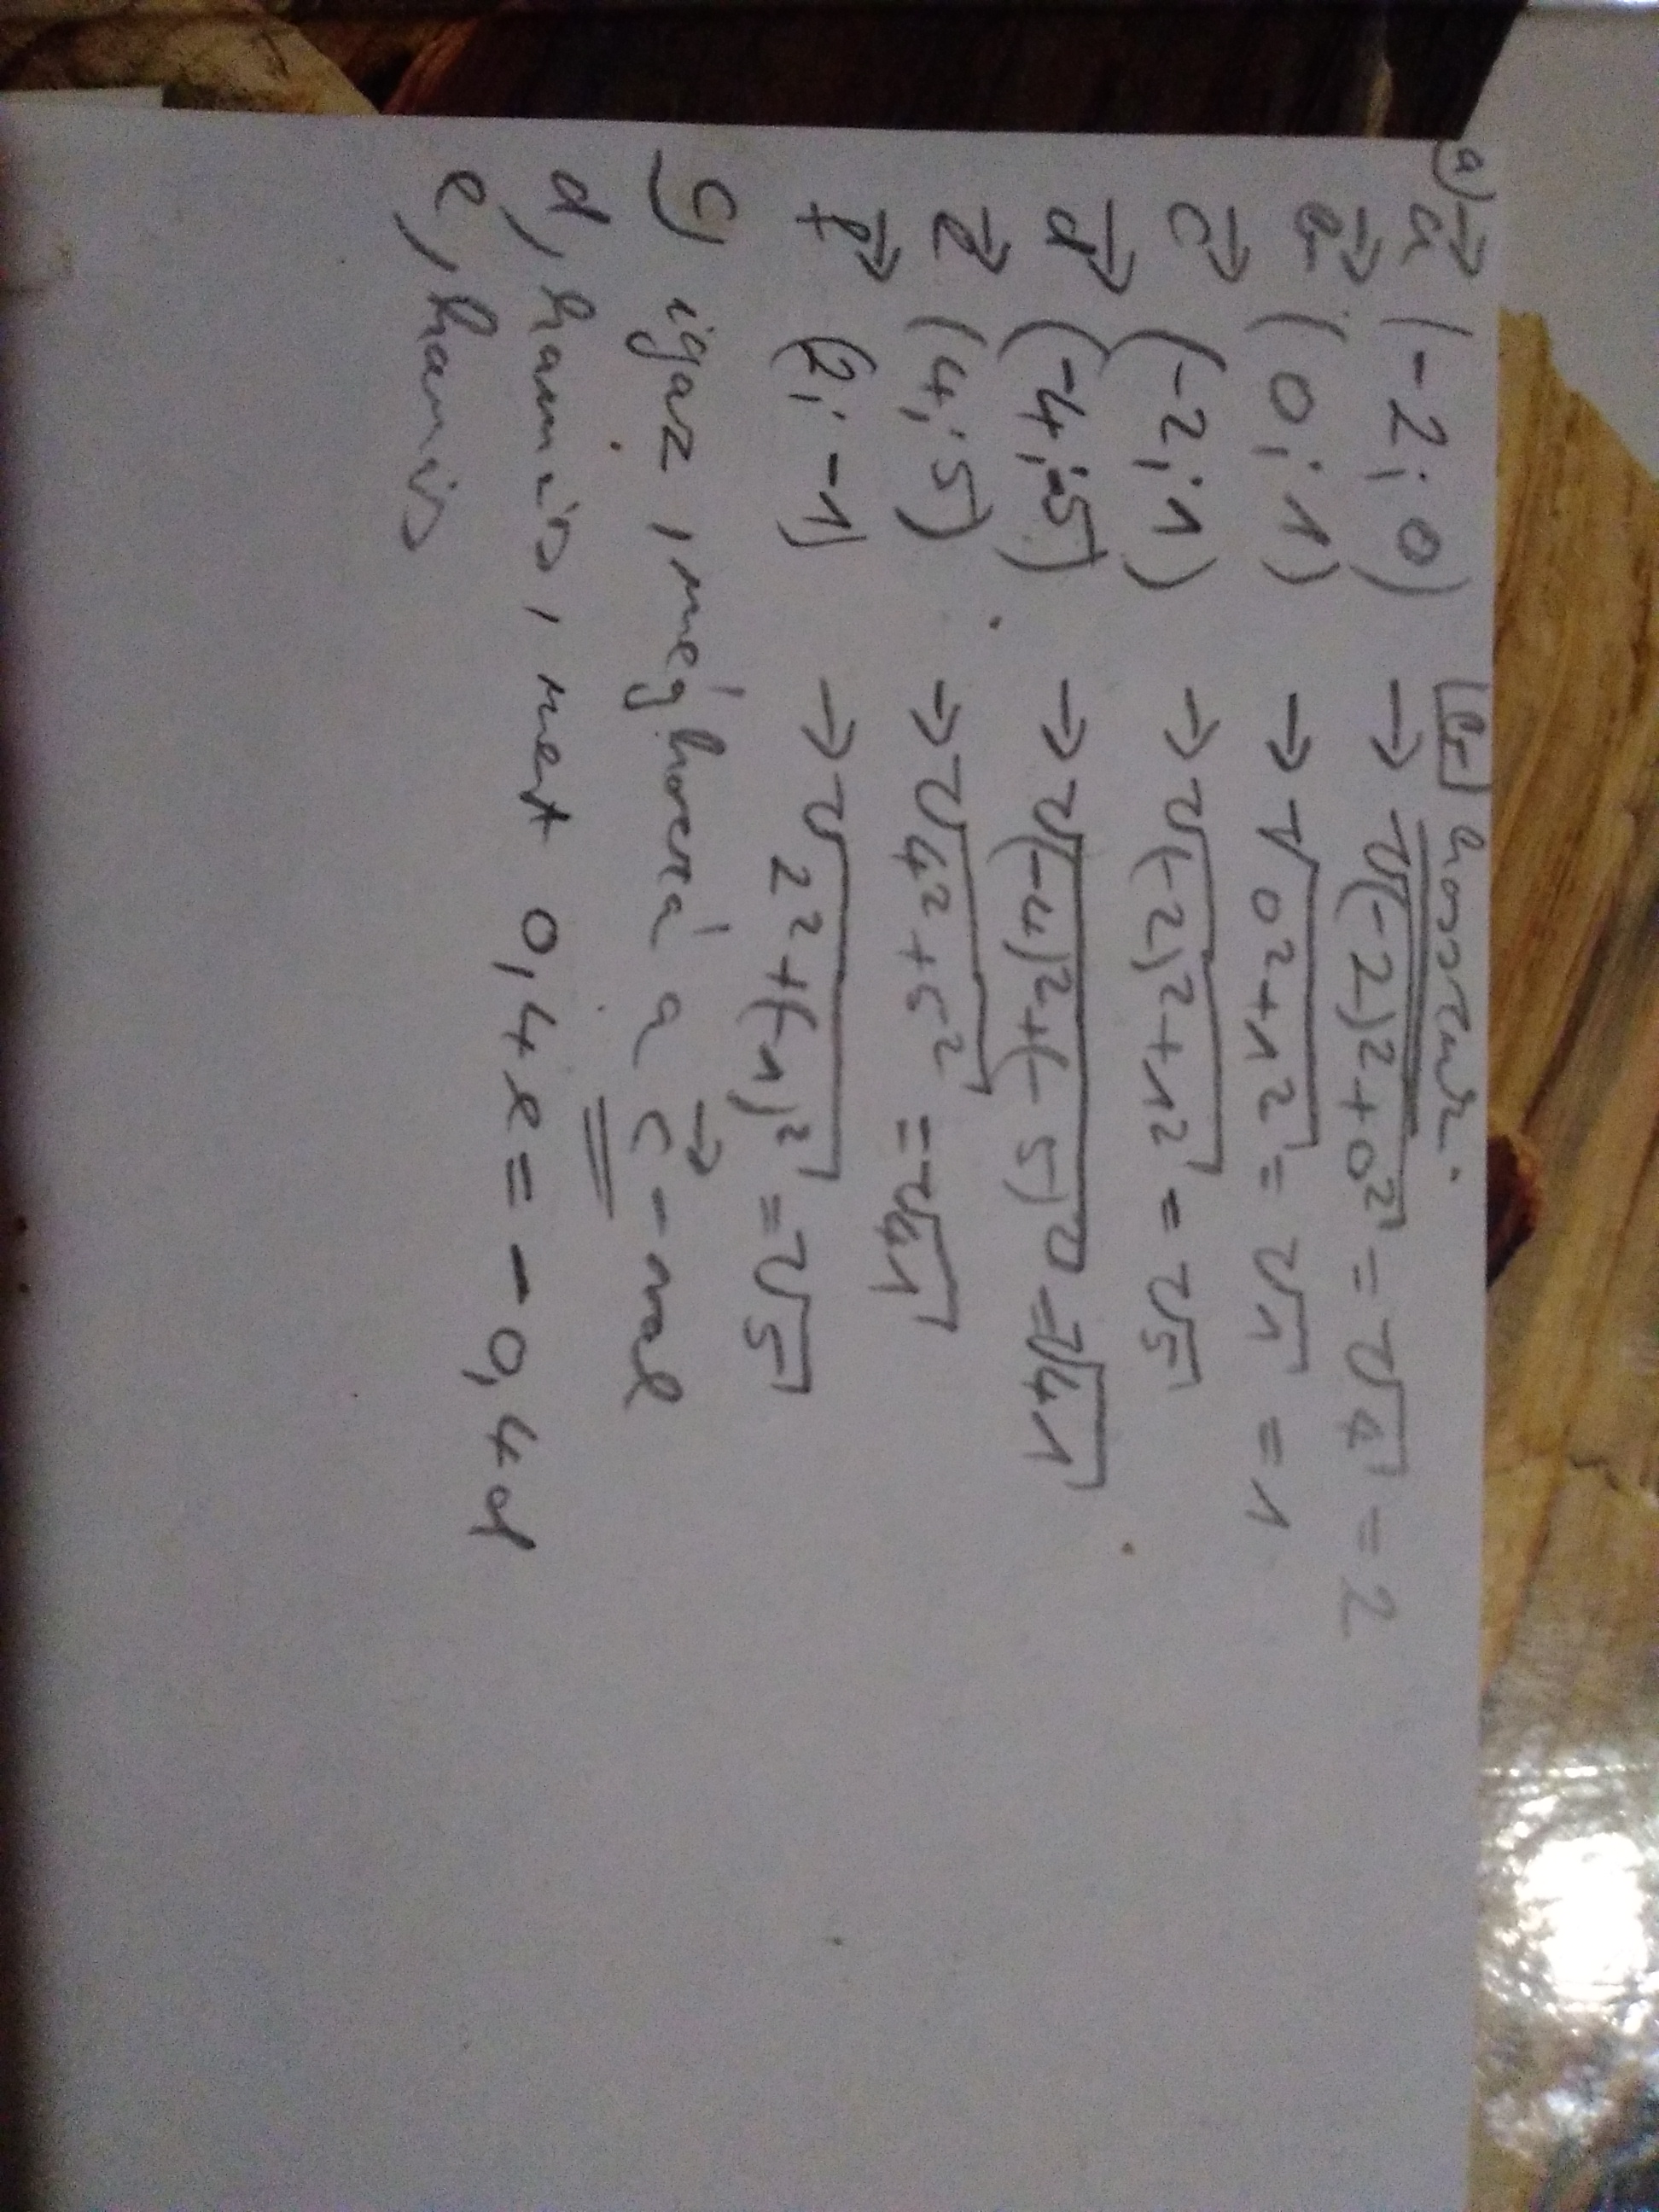 a) a⃗ (-2; 0) b) hosszuk:
→ √(-2)²+0² = √4 = 2
b⃗ (0; 1) → √0²+1² = √1 = 1
c⃗ (-2; 1) → √(-2)²+1² = √5
d⃗ (-4; -5) → √(-4)²+(-5)² = √41
e⃗ (4; 5) → √4²+5² = √41
f⃗ (2; -1) → √2²+(-1)² = √5
c) igaz, még hozzá a c⃗-nal
d, hamis, mert 0,4e = -0,4d
e, hamis